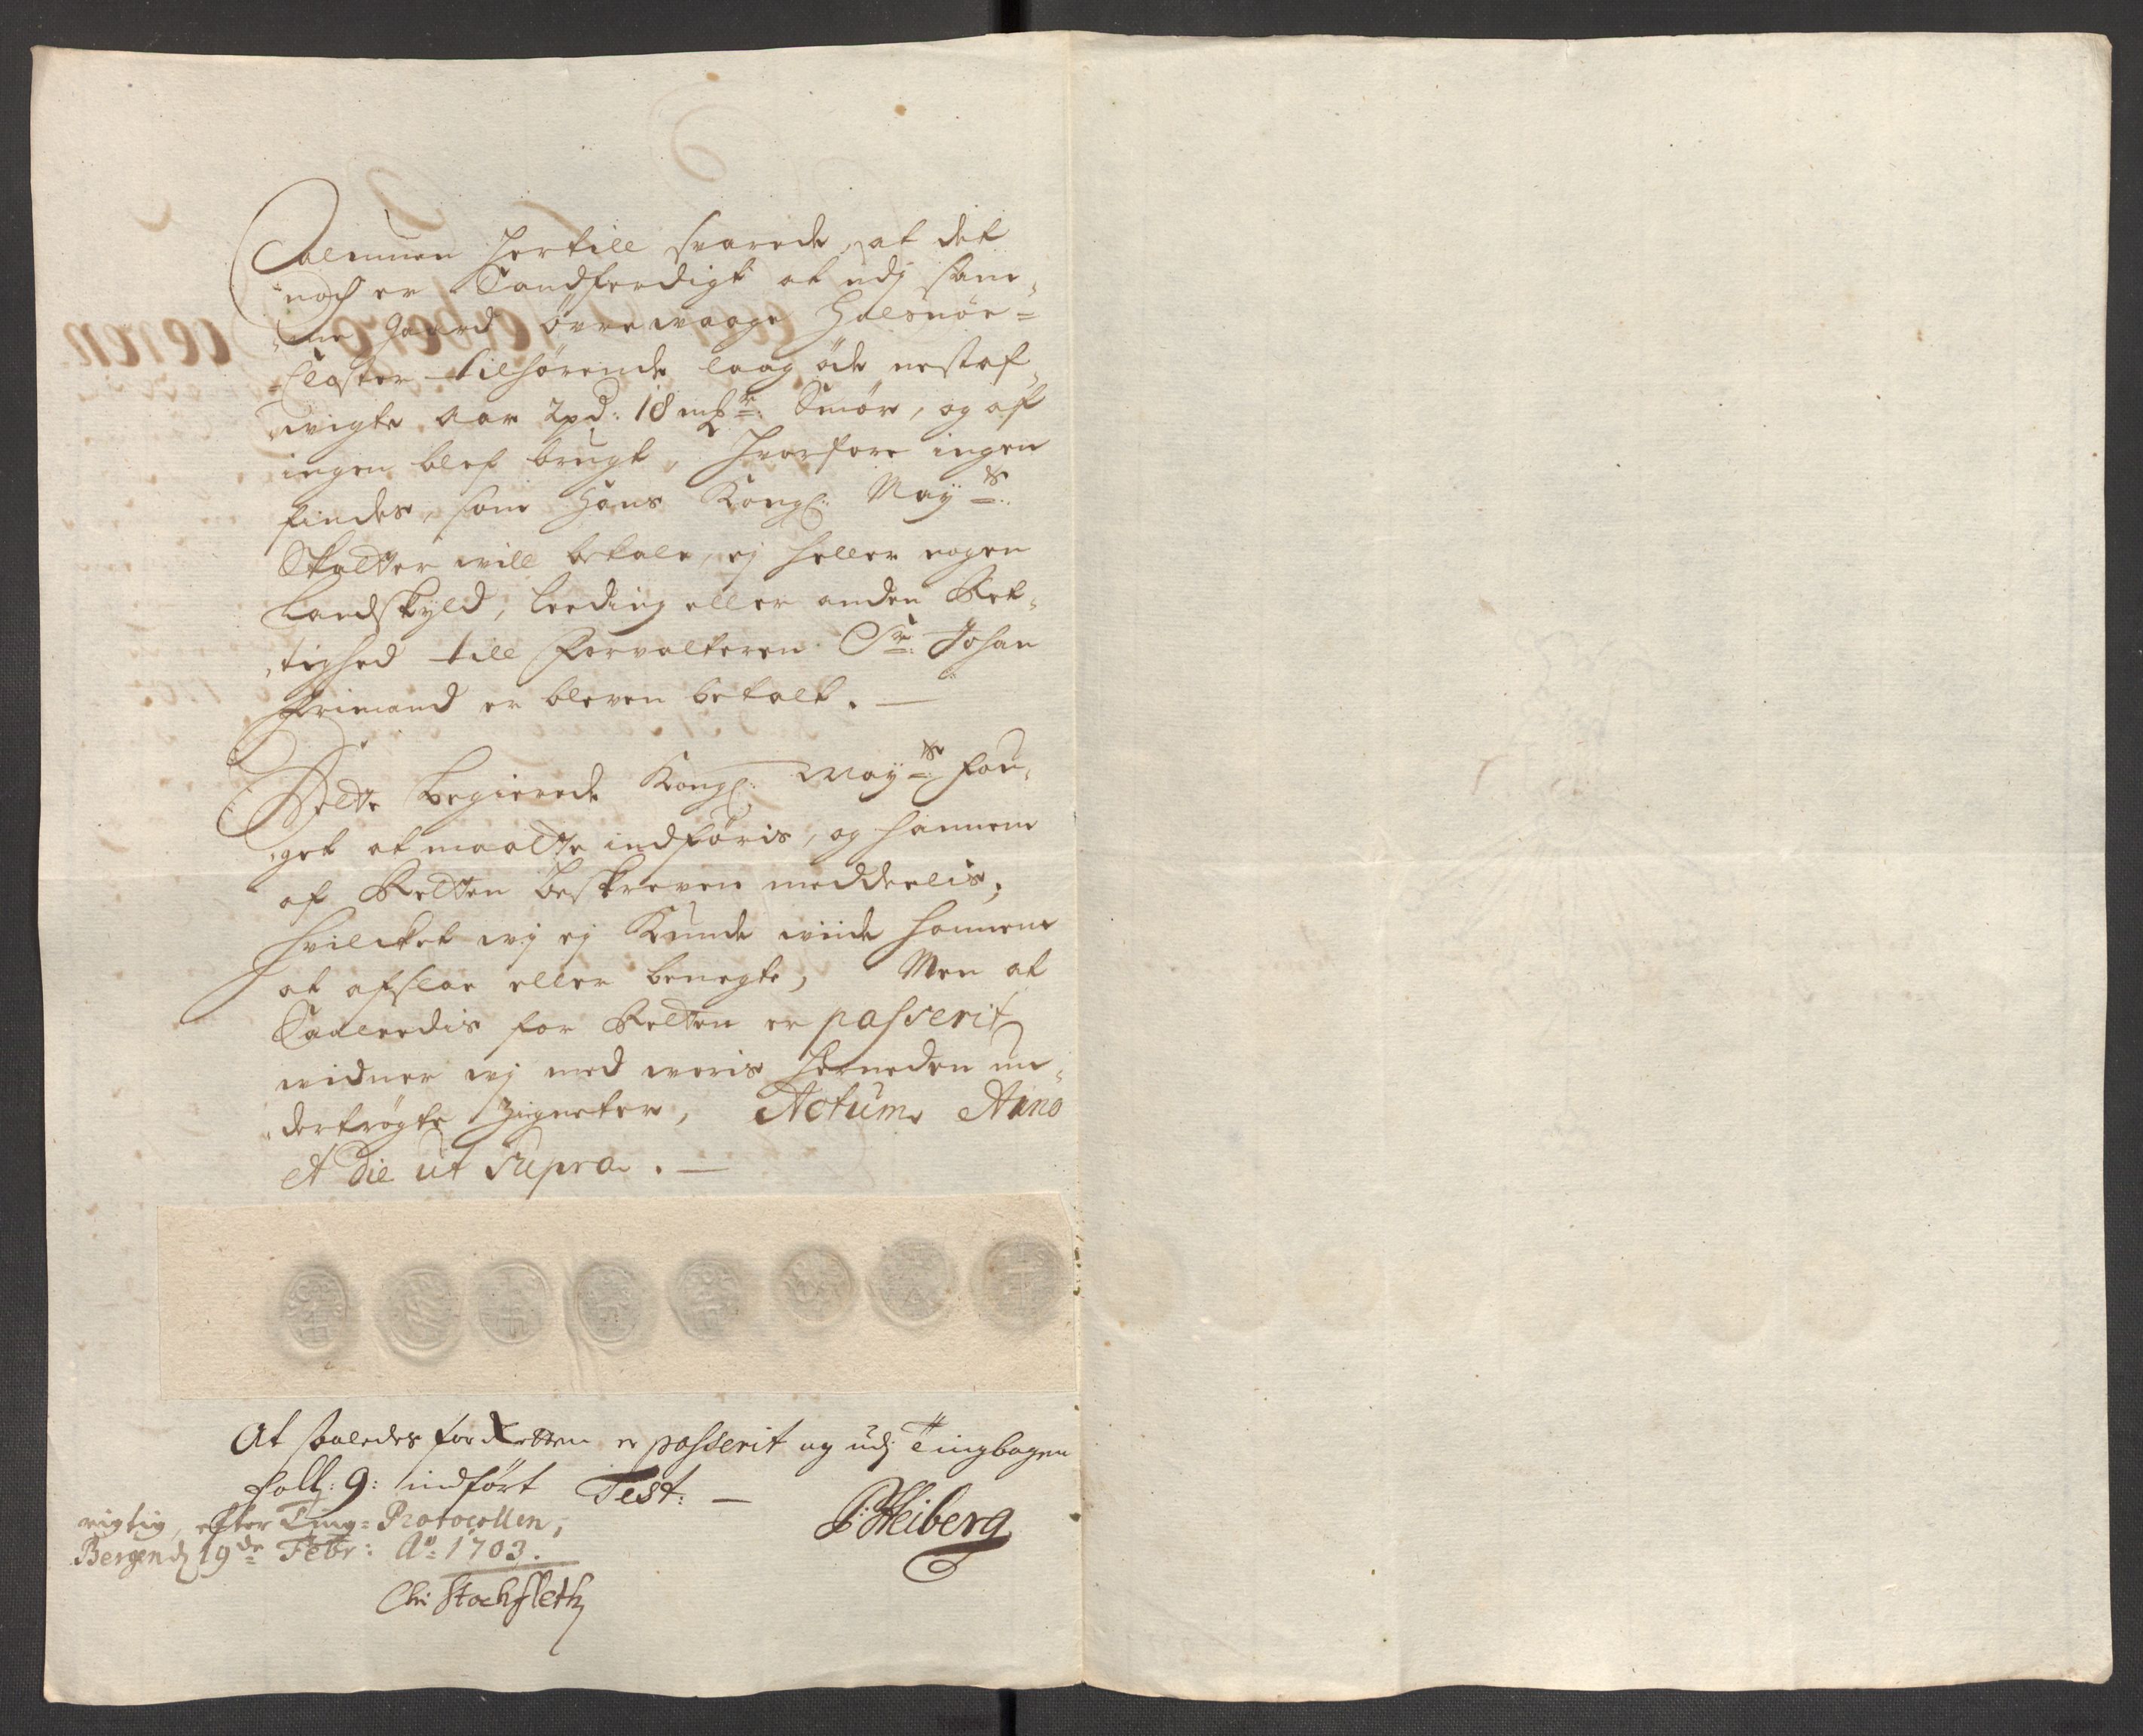 Almuen hertill svarede, at det
noch er Sandferdigt at udj sam„
„me Gaard övre waage Halsnöe=
Closter tilhörende laag öde nestaf„
„wigte Aar 2pd: 18 mkr: Smör, og af
ingen blef brugt, hvorfore ingen
findes, som Hans Kongl: May ts:
Skatter will betale, ej heller nogen
Landskyld, leeding eller anden Ret„
„tighed till Forvalteren Sr: Johan
Frimand er bleven betalt. —
Dette begierede Kongl: May ts: Fou„
„get at maatte indföris, og hannem
af Retten beskreven meddeelis,
hvilcket wj ej kunde wiide hannem
at afslae eller benegte, Men at
Saaleedis for Retten er passerit
widner wj med woris herneden un„
„dertrögte Zigneter, Actum Anno
et die ut supra. —
At saaledes for Retten er passerit og udj Tingbogen
Foll: 9: indfört Test: —
P: Heiberg
rigtig, efter Ting= Protocollen,
Bergen d 19de Febr: Ao: 1703.
Chr: Stochfleth